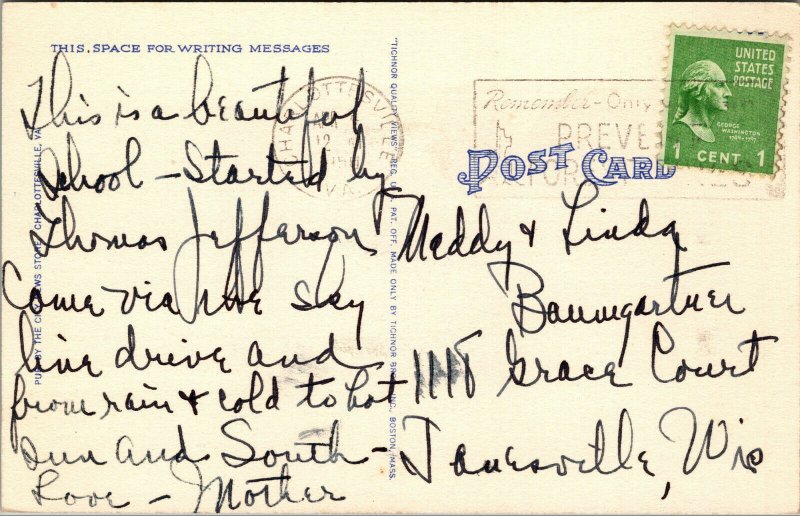 THIS SPACE FOR WRITING MESSAGES
This is a beautiful
School - Started by
Thomas Jefferson
Come via the sky
line drive and
from rain & cold to hot
sun and South -
Love - Mother
PUB. BY THE NEWS STORE, CHARLOTTESVILLE, VA.
"TICHNOR QUALITY VIEWS" REG. U. S. PAT. OFF. MADE ONLY BY TICHNOR BROS., INC., BOSTON, MASS.
CHARLOTTESVILLE
VA.
Remember - Only
PREVE
FOR
POST CARD
UNITED
STATES
POSTAGE
GEORGE
WASHINGTON
1789-1797
1 CENT 1
Neddy & Linda
Baumgartner
1118 Grace Court
Janesville, Wis